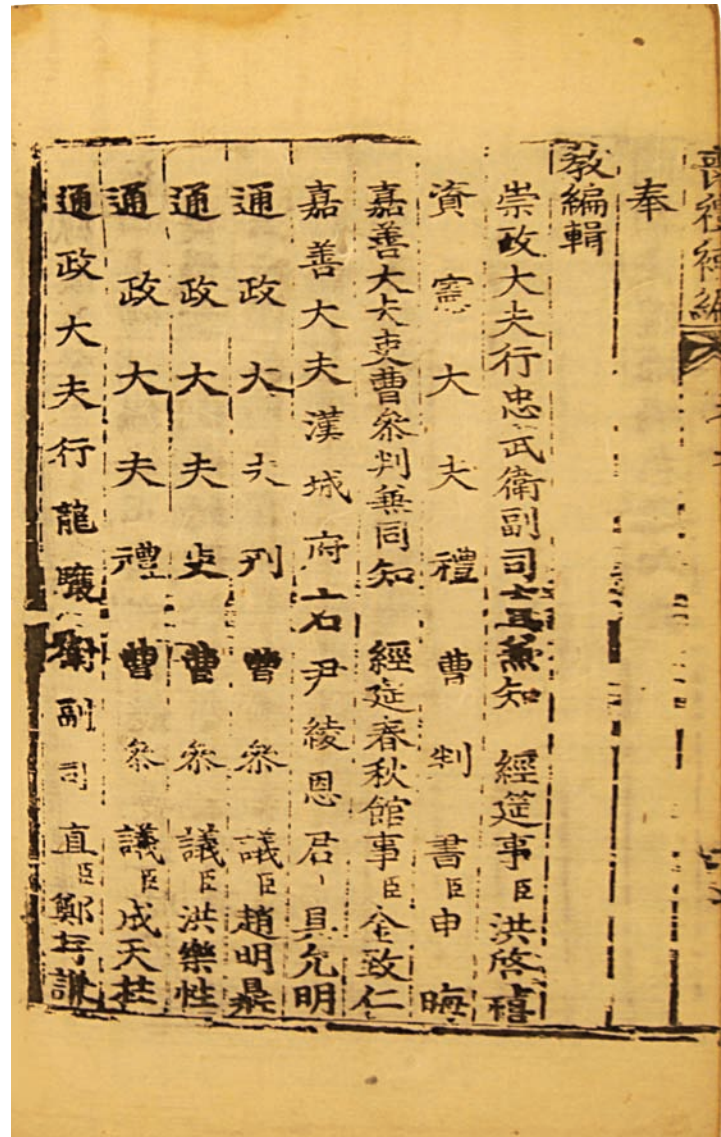 喪禮補編
奉
敎編輯
崇政大夫行忠武衛副司直兼知　經筵事臣洪啓禧
資憲大夫禮曹判書臣申晦
嘉善大夫吏曹參判兼同知　經筵春秋館事臣金致仁
嘉善大夫漢城府右尹綾恩君臣具允明
通政大夫刑曹參議臣趙明鼎
通政大夫吏曹參議臣洪樂性
通政大夫禮曹參議臣成天柱
通政大夫行龍驤衛副司直臣鄭